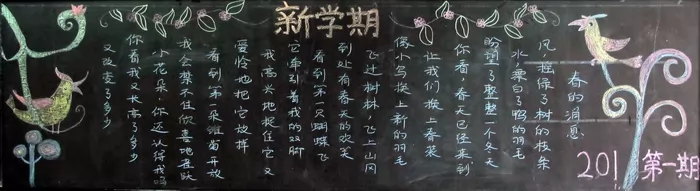 新学期
春的消息
风,摇绿了树的枝条
水,漂白了鸭的羽毛
盼望了整整一个冬天
你看,春天已经来到
让我们换上春装
像小鸟换上新的羽毛
飞过树林,飞上山冈
到处有春天的欢笑
看到第一只蝴蝶飞
它牵引着我的双脚
我高兴地捉住它,又
爱怜地把它放
看到第一朵雏菊开放
我会禁不住欣喜地跃
小花朵,你还认得我吗
你看我又长高了多少
又改变了多少
201 第一期